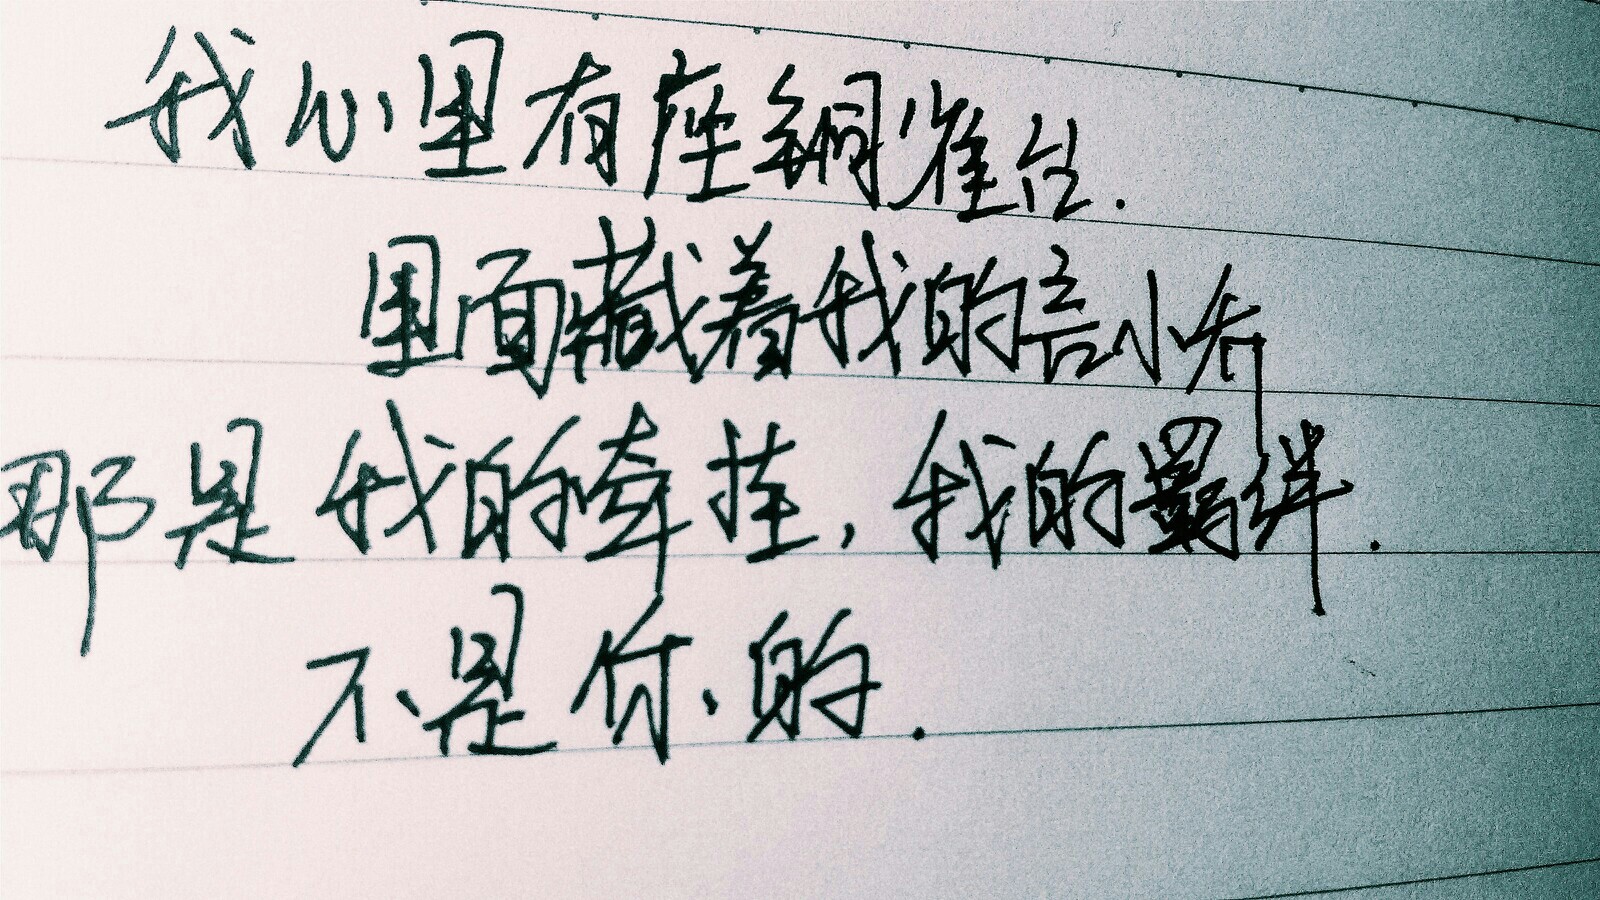 我心里有座铜雀台.
里面藏着我的言小乔
那是我的牵挂,我的羁绊.
不是你的.